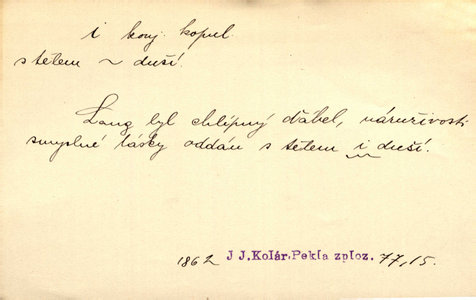 i konj. kopul.
s tělem ~ duší.
Lang byl chlípný ďábel, náruživosti
smyslné lásky oddán s tělem i duší.
1862 J J. Kolár. Pekla zploz. 77, 15.